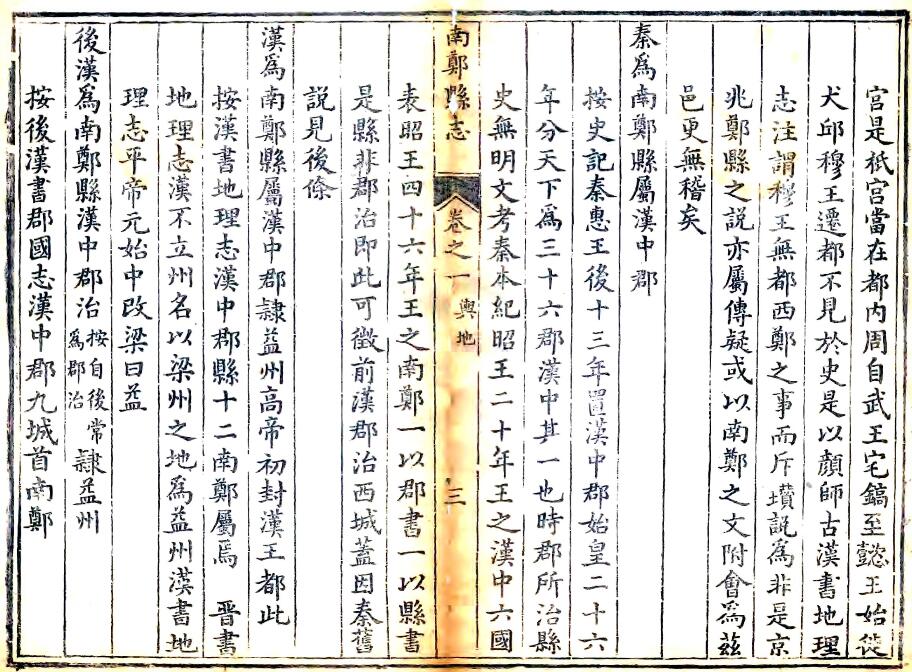 宫是祇宫當在都内周自武王宅鎬至懿王始徙
犬邱穆王遷都不見於史是以顔師古漢書地理
志注謂穆王無都西鄭之事而斥墳說爲非是京
兆鄭縣之說亦屬傳疑或以南鄭之文附會爲兹
邑更無稽矣
秦爲南鄭縣屬漢中郡
按史記秦惠王後十三年置漢中郡始皇二十六
年分天下爲三十六郡漢中其一也時郡所治縣
史無明文考秦本紀昭王二十年王之漢中六國
南鄭縣志
卷之一
輿地
三
表昭王四十六年王之南鄭一以郡書一以縣書
是縣非郡治即此可徵前漢郡治西城蓋因秦舊
說見後條
漢爲南鄭縣屬漢中郡隷益州高帝初封漢王都此
按漢書地理志漢中郡縣十二南鄭屬焉 晋書
地理志漢不立州名以梁州之地爲益州漢書地
理志平帝元始中改梁曰益
後漢爲南鄭縣漢中郡治按自後常爲郡治隷益州
按後漢書郡國志漢中郡九城首南鄭